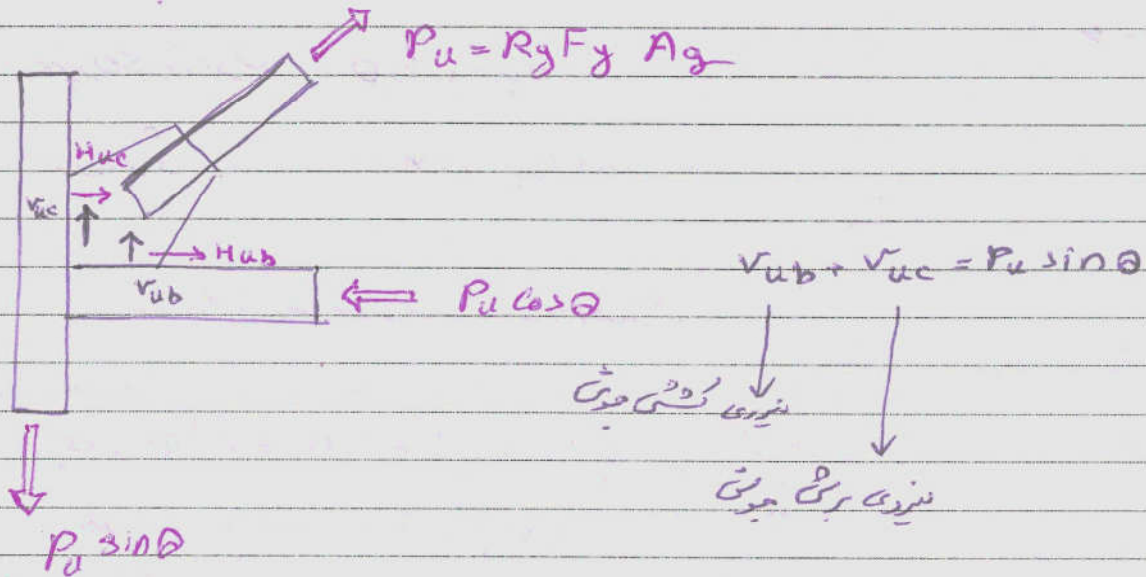 Pu = Ry Fy Ag
Huc
Vuc
Hub
Vub
Pu Cosθ
Vub + Vuc = Pu sinθ
نیروی کششی جوش
نیروی برشی جوش
Pu sinθ